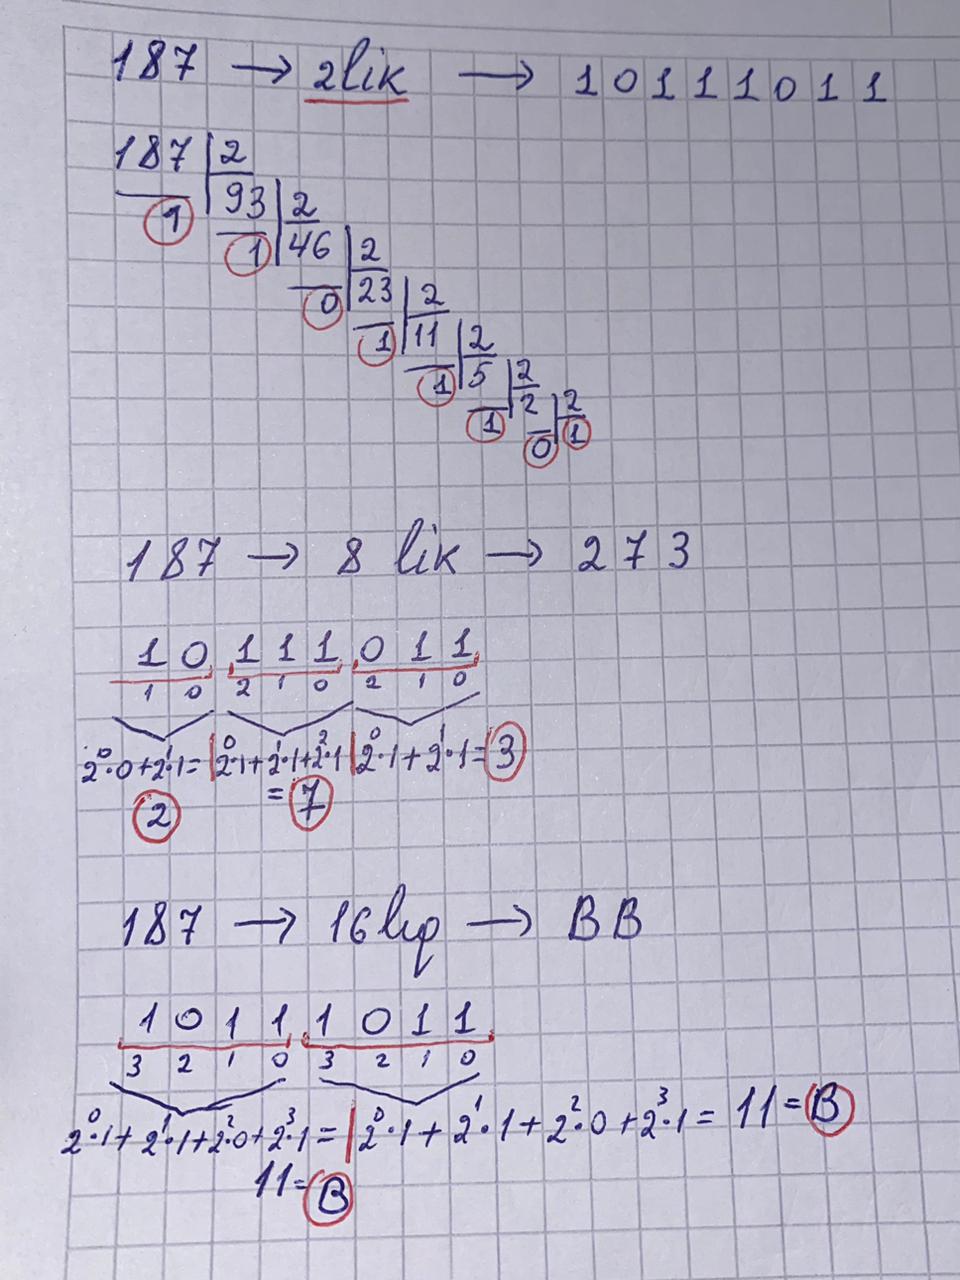 187 → 2lik → 10111011
187 | 2
1 93 | 2
1 46 | 2
0 23 | 2
1 11 | 2
1 5 | 2
1 2 | 2
0 1
187 → 8 lik → 273
10 111 011
1 0 2 1 0 2 1 0
2⁰·0+2¹·1= | 2⁰·1+2¹·1+2²·1 | 2⁰·1+2¹·1= 3
2 = 7
187 → 16liq → BB
1011 1011
3 2 1 0 3 2 1 0
2⁰·1+2¹·1+2²·0+2³·1= | 2⁰·1+2¹·1+2²·0+2³·1= 11=B
11=B